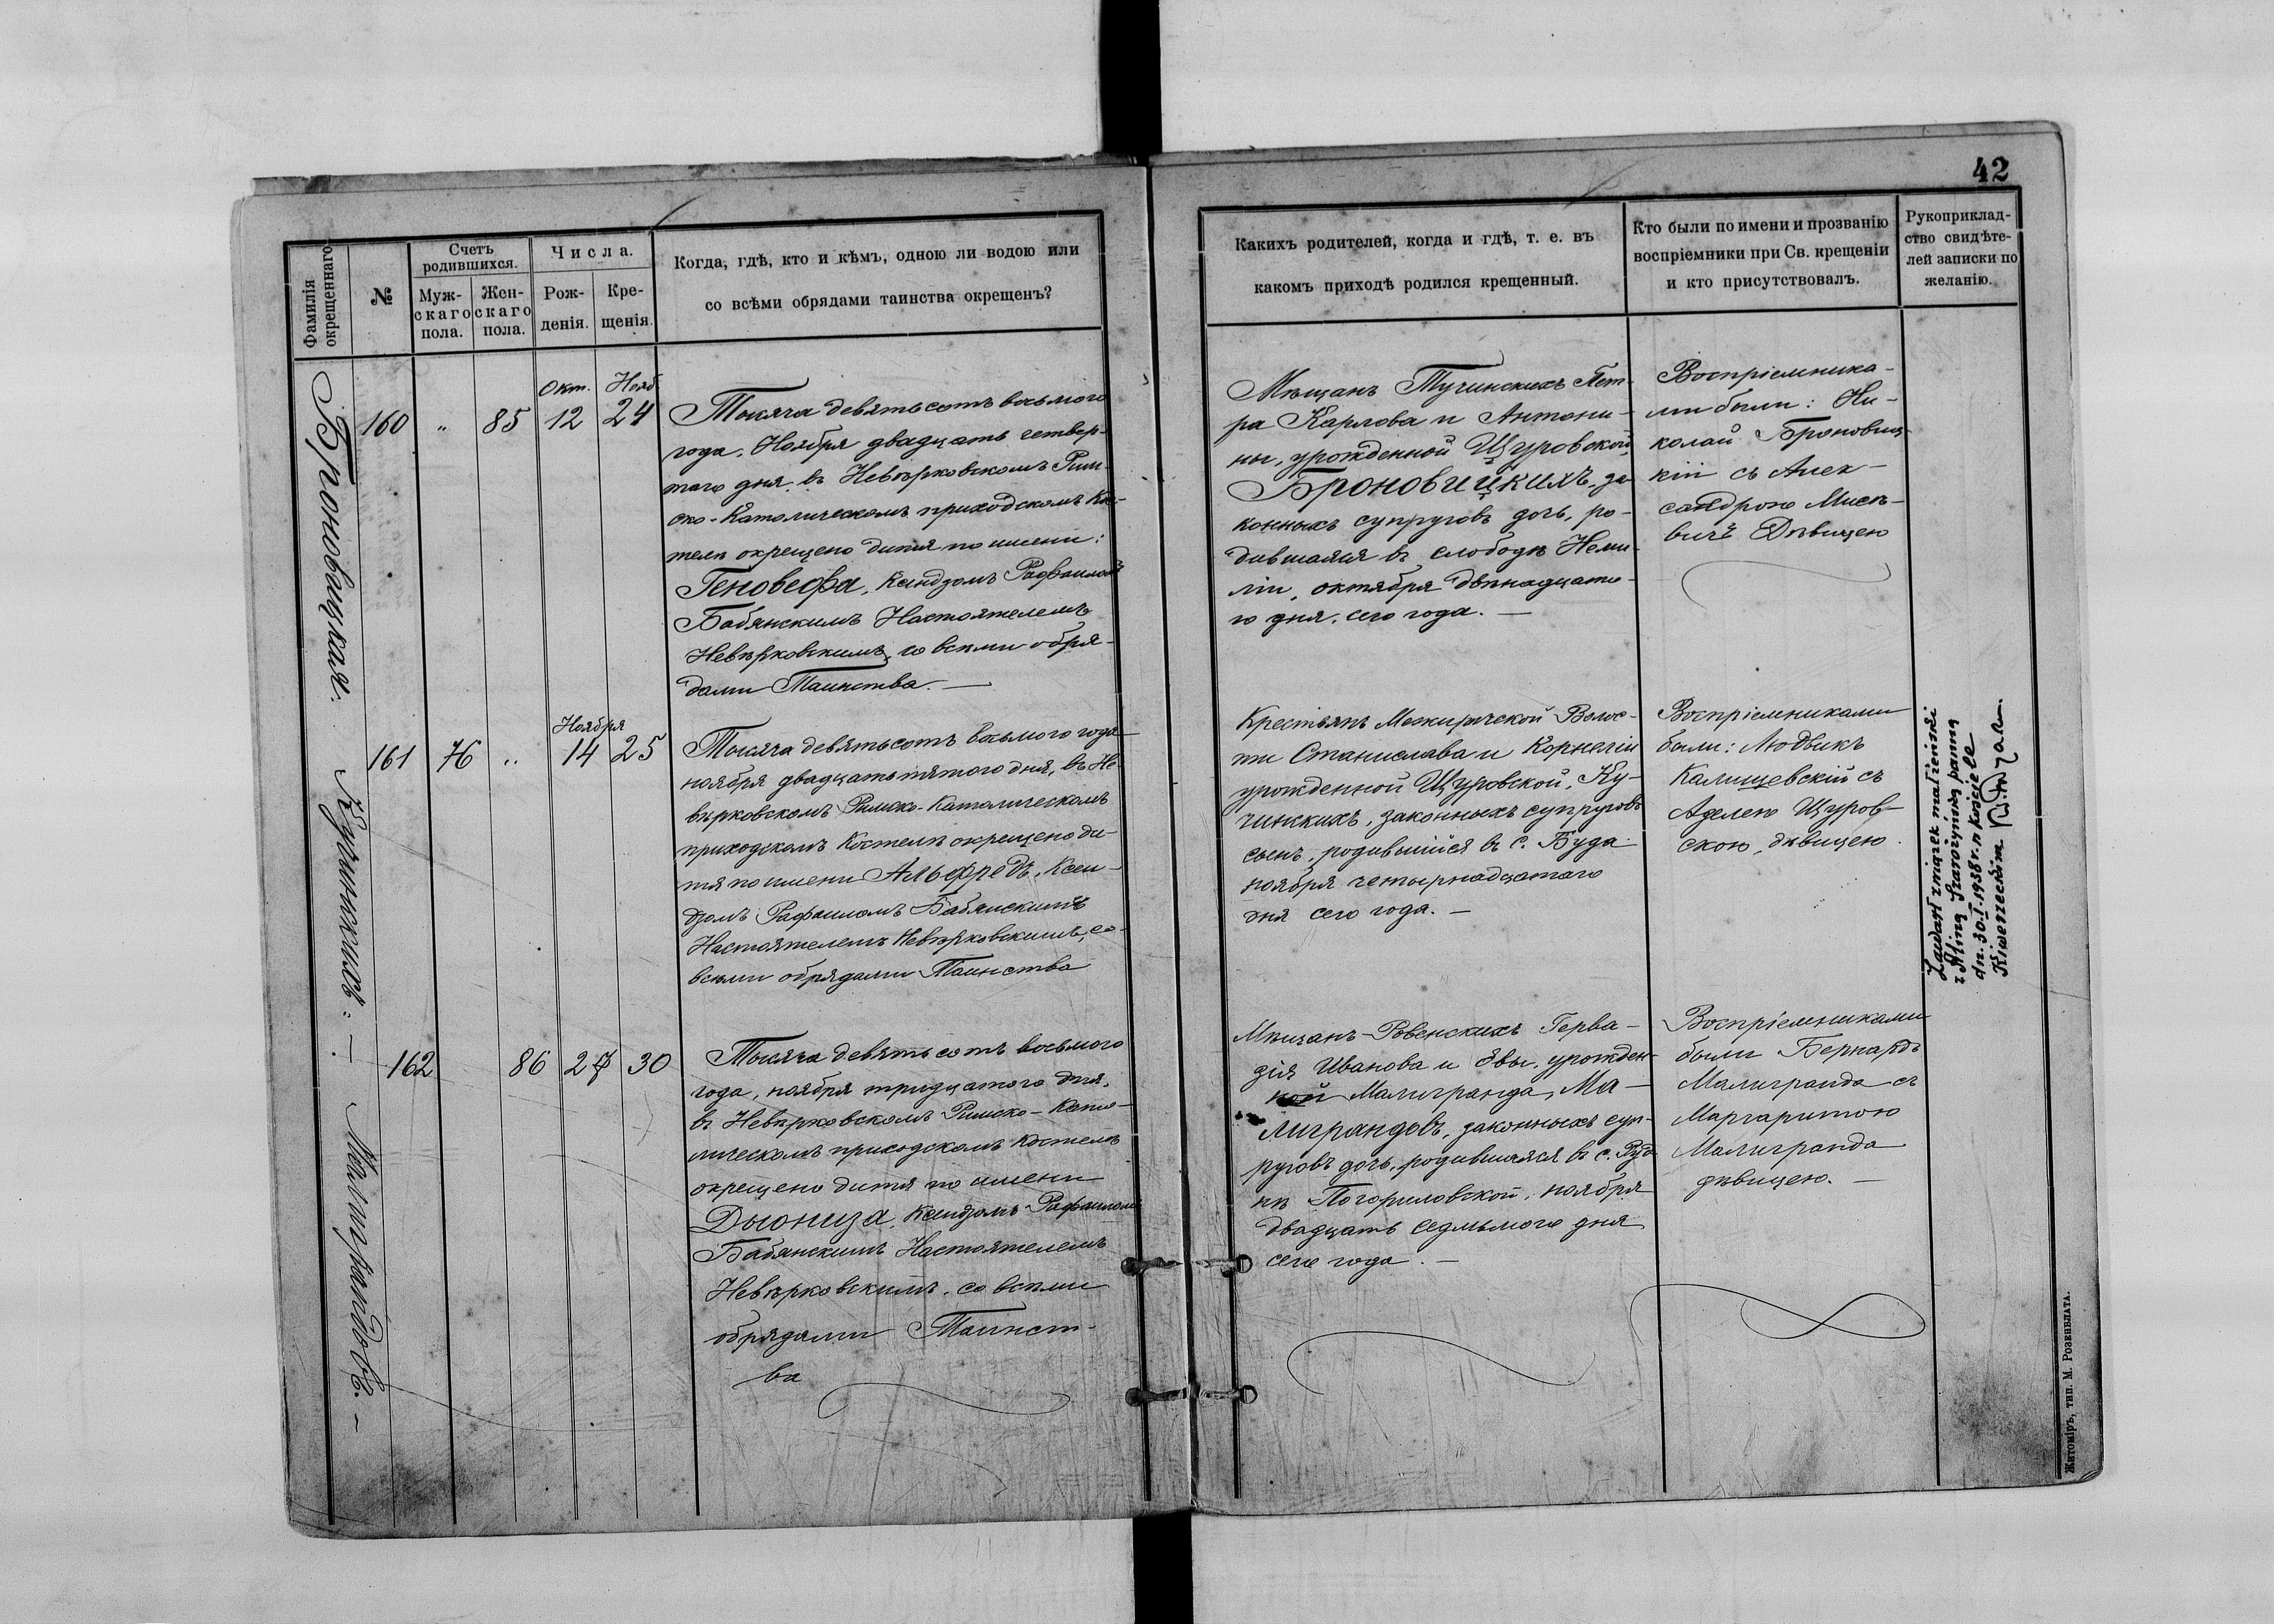 42
Фамилія окрещеннаго
№
Счетъ родившихся.
Мужскаго пола.
Женскаго пола.
Числа.
Рожденія.
Крещенія.
Когда, гдѣ, кто и кѣмъ, одною ли водою или
со всѣми обрядами таинства окрещенъ?
Какихъ родителей, когда и гдѣ, т. е. въ
какомъ приходѣ родился крещенный.
Кто были по имени и прозванію
воспріемники при Св. крещеніи
и кто присутствовалъ.
Рукоприклад-
ство свидѣте-
лей записки по
желанію.
Броновицкая.
160 „ 85
Окт. Нояб
12 24
Тысяча девятьсотъ восьмого
года, Ноября двадцать четвер-
таго дня въ Невѣрковскомъ Рим-
ско-Католическомъ приходскомъ Кос-
телѣ окрещено дитя по имени:
Геновефа, Ксендзомъ Рафаиломъ
Бабянскимъ Настоятелемъ
Невѣрковскимъ, со всѣми обря-
дами Таинства. —
Мѣщанъ Тучинскихъ Пет-
ра Карлова и Антони-
ны, урожденной Щуровской,
Броновицкихъ, за-
конныхъ супруговъ дочь, ро-
дившаяся въ слободѣ Неми-
ліи, октября двѣнадцата-
го дня, сего года. —
Воспріемника-
ми были: Ни-
колай Броновиц-
кій съ Алек-
сандрою
Дѣвицею
Кучинскихъ: —
161 76 „
Ноября
14 25
Тысяча девятьсотъ восьмого года
ноября двадцать пятого дня, въ Не-
вѣрковскомъ Римско-Католическомъ
приходскомъ Костелѣ окрещено ди-
тя по имени Альфредъ, Ксен-
дзомъ Рафаиломъ Бабянскимъ
Настоятелемъ Невѣрковскимъ, со
всѣми обрядами Таинства
Крестьянъ Межиричской Волос-
ти Станислава и Корнеліи
урожденной Щуровской, Ку-
чинскихъ, законныхъ супруговъ
сынъ, родившійся въ с. Буда
ноября четырнадцатаго
дня сего года. —
Воспріемниками
были: Людвикъ
Калишевскій съ
Аделею Щуров-
скою, дѣвицею.
Zawarł związek małżeński
z Aliną Szarozyńską panną
dn. 30.I.1938 r. w kościele
Kiwerzeckim
Малиграндовъ. —
162 86 27 30
Тысяча девятьсотъ восьмого
года, ноября тридцатого дня,
въ Невѣрковскомъ Римско-Като-
лическомъ приходскомъ Костелѣ
окрещено дитя по имени
Дыониза, Ксендзомъ Рафаиломъ
Бабянскимъ Настоятелемъ
Невѣрковскимъ, со всѣми
обрядами Таинст-
ва
Мѣщанъ Ровенскихъ Герва-
зія Иванова и Эвы, урожден-
ной Малигранда, Ма-
лиграндовъ, законныхъ суп-
руговъ дочь, родившаяся въ с. Руд-
нѣ Погориловской, ноября
двадцать седьмого дня
сего года. —
Воспріемниками
были Бернардъ
Малигранда съ
Маргаритою
Малигранда
дѣвицею. —
Житоміръ, тип. М. Розенблата.